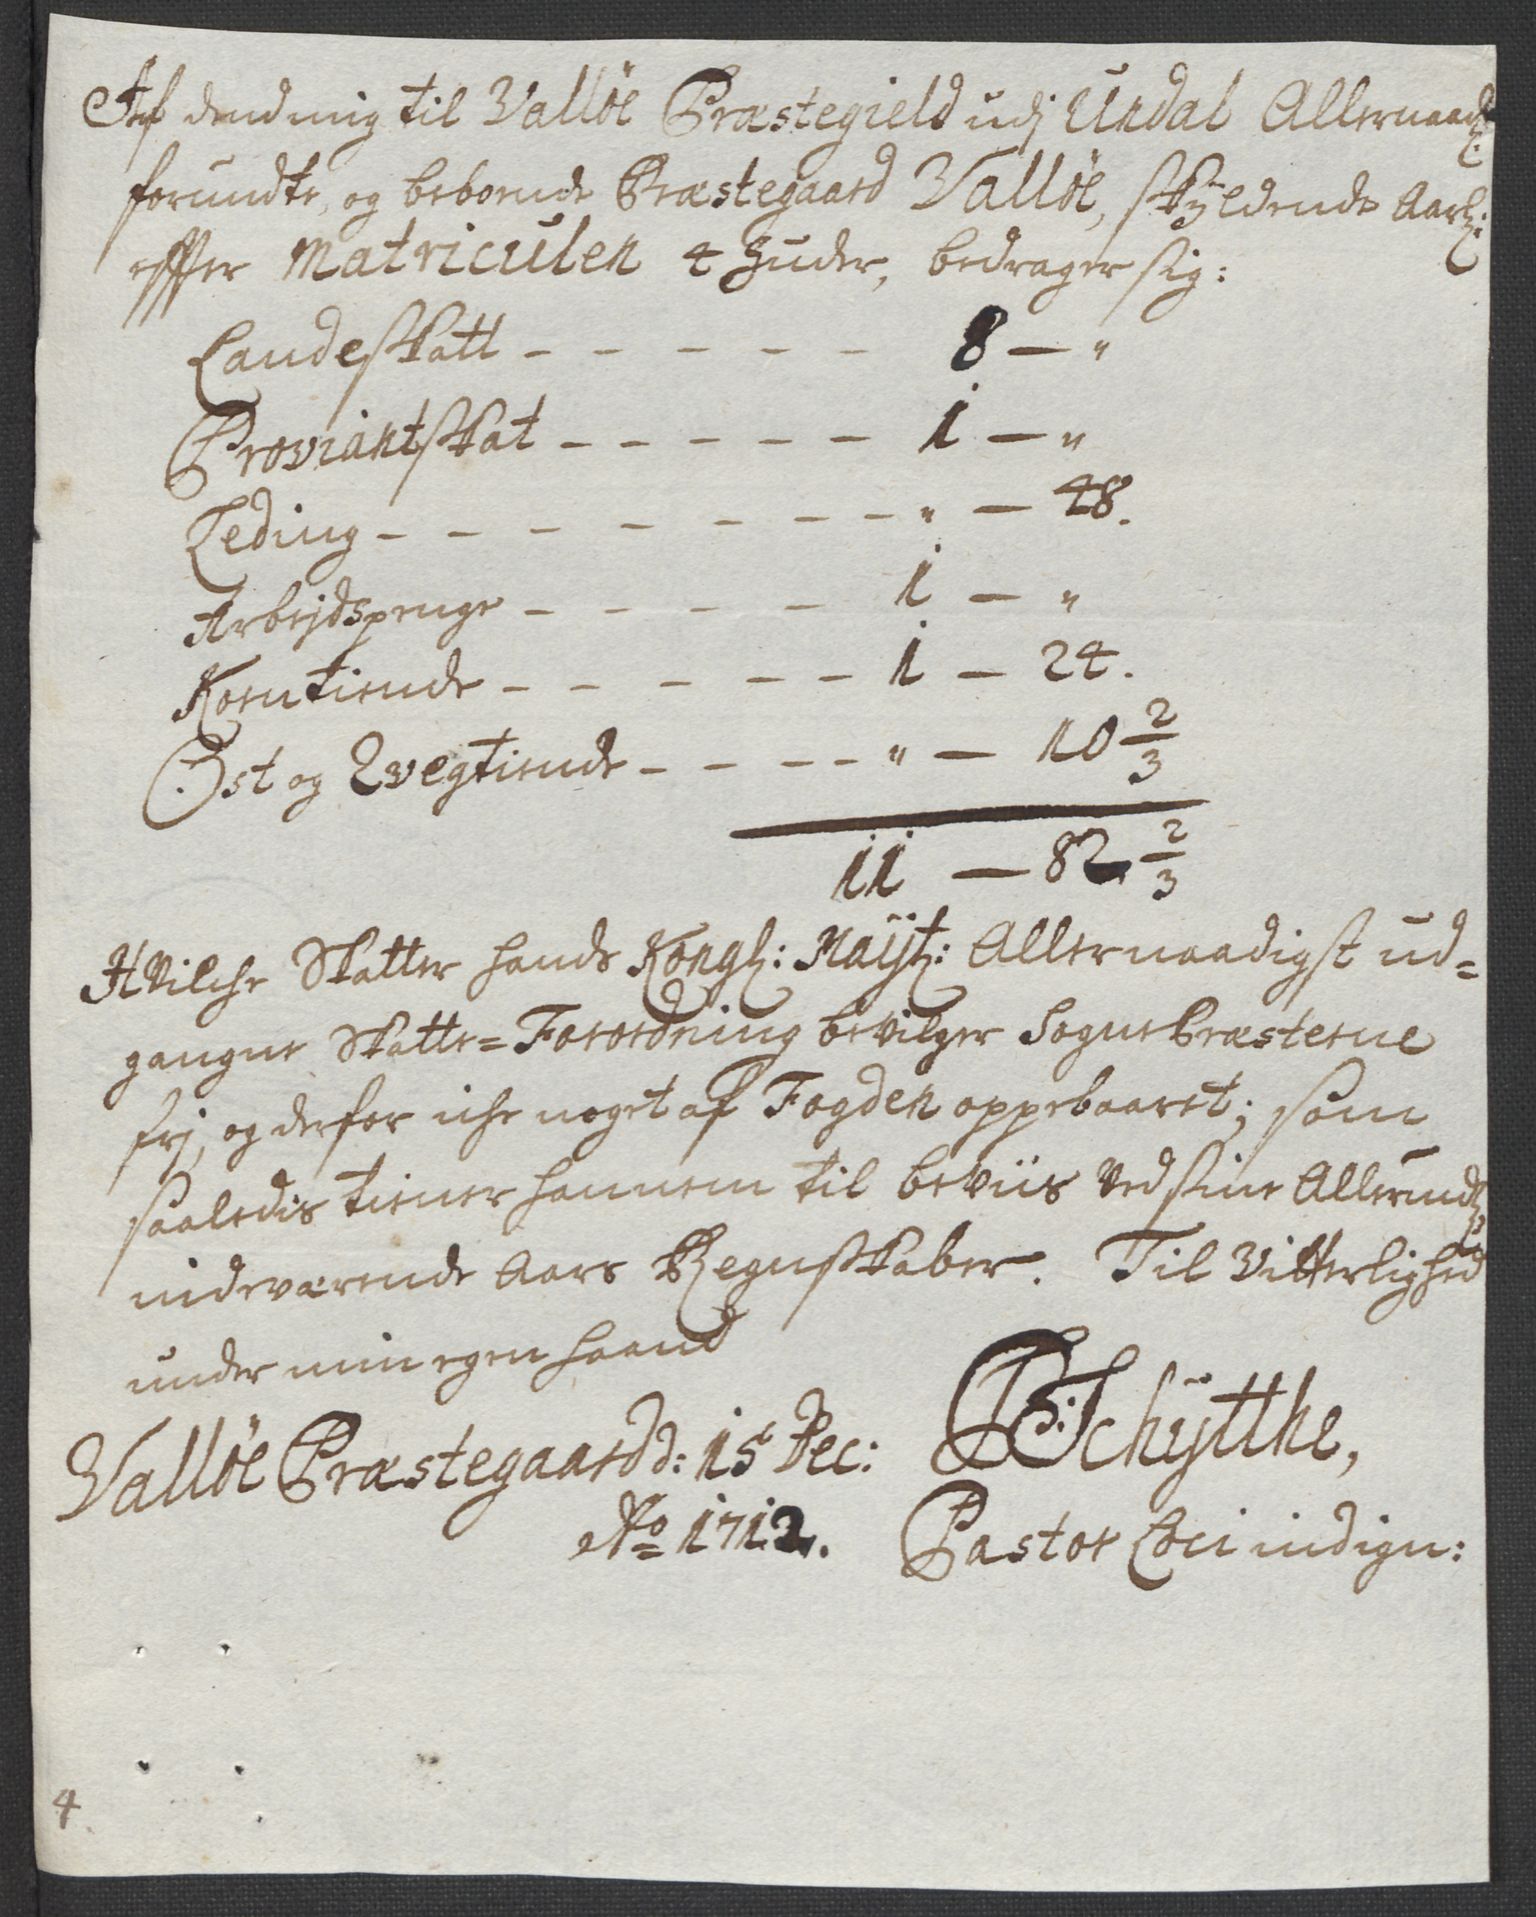 Af dend mig til Valløe Præstegield udj Undal Allernaadigst
forundte, og beboende Præstegaard Valløe, skyldende Aarl:
effter Matriculen 4 huder, bedrager sig:
Landeskatt - - - - - 8 — "
Proviantskat - - - - - 1 — "
Leding - - - - - - - " — 48.
Arbejdspenge - - - - 1 — "
Korntiende - - - - - 1 — 24.
Ost og Qvegtiende - - - - " — 10 2/3
11 — 82 2/3
Hvilche Skatter hands Kongl: Mayst: Allernaadigst ud=
gangne Skatte=Forordning bevilger SognePræsterne
frj, og derfor iche noget af Fogden oppebaaret; som
saaledis tiener hannem til beviis ved sine Allerunds
indeværende Aars Regnskaber. Til Vitterlighed
under min egen haand
Valløe Præstegaard d: 15 Dec:
Ao 1712.
PSchytthe,
Pastor Loci indign:
4